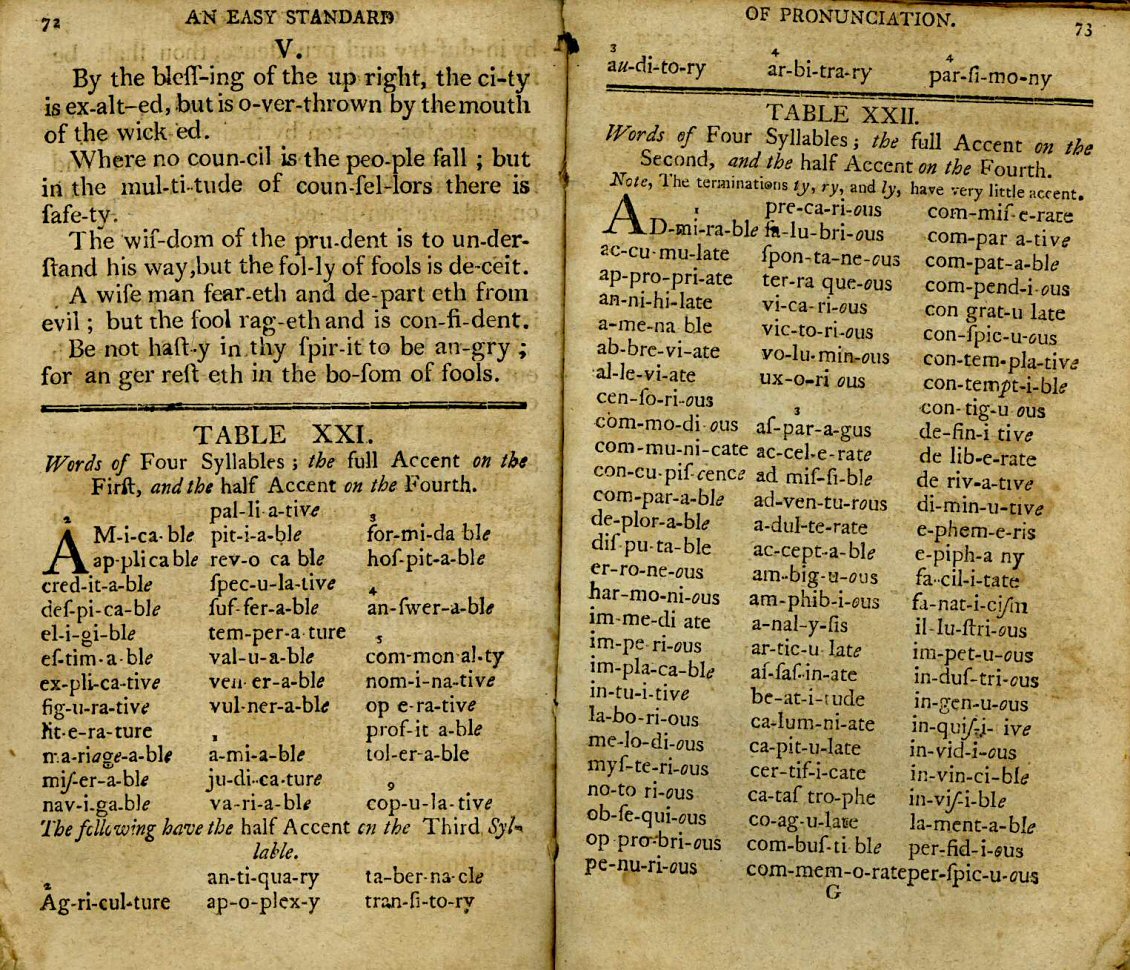 72 AN EASY STANDARD
V.
By the bleſſ-ing of the up right, the ci-ty
is ex-alt-ed, but is o-ver-thrown by the mouth
of the wick ed.
Where no coun-cil is the peo-ple fall ; but
in the mul-ti-tude of coun-ſel-lors there is
ſafe-ty.
The wiſ-dom of the pru-dent is to un-der-
ſtand his way, but the fol-ly of fools is de-ceit.
A wiſe man fear-eth and de-part eth from
evil ; but the fool rag-eth and is con-fi-dent.
Be not haſt-y in thy ſpir-it to be an-gry ;
for an ger reſt eth in the bo-ſom of fools.
TABLE XXI.
Words of Four Syllables ; the full Accent on the
Firſt, and the half Accent on the Fourth.
2
AM-i-ca-ble
ap-pli ca ble
cred-it-a-ble
deſ-pi-ca-ble
el-i-gi-ble
eſ-tim-a-ble
ex-pli-ca-tive
fig-u-ra-tive
lit-e-ra-ture
ma-riage-a-ble
miſ-er-a-ble
nav-i-ga-ble
pal-li-a-tive
pit-i-a-ble
rev-o ca ble
ſpec-u-la-tive
ſuf-fer-a-ble
tem-per-a-ture
val-u-a-ble
ven-er-a-ble
vul-ner-a-ble
1
a-mi-a-ble
ju-di-ca-ture
va-ri-a-ble
3
for-mi-da ble
hoſ-pit-a-ble
4
an-ſwer-a-ble
5
com-mon-al-ty
nom-i-na-tive
op e-ra-tive
prof-it a-ble
tol-er-a-ble
9
cop-u-la-tive
The following have the half Accent on the Third Syl-
lable.
2
Ag-ri-cul-ture
an-ti-qua-ry
ap-o-plex-y
ta-ber-na-cle
tran-ſi-to-ry
OF PRONUNCIATION. 73
3 4 4
au-di-to-ry ar-bi-tra-ry par-ſi-mo-ny
TABLE XXII.
Words of Four Syllables ; the full Accent on the
Second, and the half Accent on the Fourth.
Note, The terminations ty, ry, and ly, have very little accent.
1
AD-mi-ra-ble
ac-cu-mu-late
ap-pro-pri-ate
an-ni-hi-late
a-me-na ble
ab-bre-vi-ate
al-le-vi-ate
cen-ſo-ri-ous
com-mo-di-ous
com-mu-ni-cate
con-cu-piſ-cence
com-par-a-ble
de-plor-a-ble
diſ-pu-ta-ble
er-ro-ne-ous
har-mo-ni-ous
im-me-di ate
im-pe-ri-ous
im-pla-ca-ble
in-tu-i-tive
la-bo-ri-ous
me-lo-di-ous
myſ-te-ri-ous
no-to ri-ous
ob-ſe-qui-ous
op pro-bri-ous
pe-nu-ri-ous
pre-ca-ri-ous
ſa-lu-bri-ous
ſpon-ta-ne-ous
ter-ra que-ous
vi-ca-ri-ous
vic-to-ri-ous
vo-lu-min-ous
ux-o-ri ous
3
aſ-par-a-gus
ac-cel-e-rate
ad miſ-ſi-ble
ad-ven-tu-rous
a-dul-te-rate
ac-cept-a-ble
am-big-u-ous
am-phib-i-ous
a-nal-y-ſis
ar-tic-u late
aſ-ſaſ-in-ate
be-at-i-tude
ca-lum-ni-ate
ca-pit-u-late
cer-tif-i-cate
ca-taſ tro-phe
co-ag-u-late
com-buſ-ti ble
com-mem-o-rate
com-miſ-e-rate
com-par a-tive
com-pat-a-ble
com-pend-i-ous
con grat-u late
con-ſpic-u-ous
con-tem-pla-tive
con-tempt-i-ble
con-tig-u ous
de-fin-i tive
de lib-e-rate
de riv-a-tive
di-min-u-tive
e-phem-e-ris
e-piph-a ny
fa-cil-i-tate
fa-nat-i-ciſm
il-lu-ſtri-ous
im-pet-u-ous
in-duſ-tri-ous
in-gen-u-ous
in-quiſ-i- ive
in-vid-i-ous
in-vin-ci-ble
in-viſ-i-ble
la-ment-a-ble
per-fid-i-ous
per-ſpic-u-ous
G